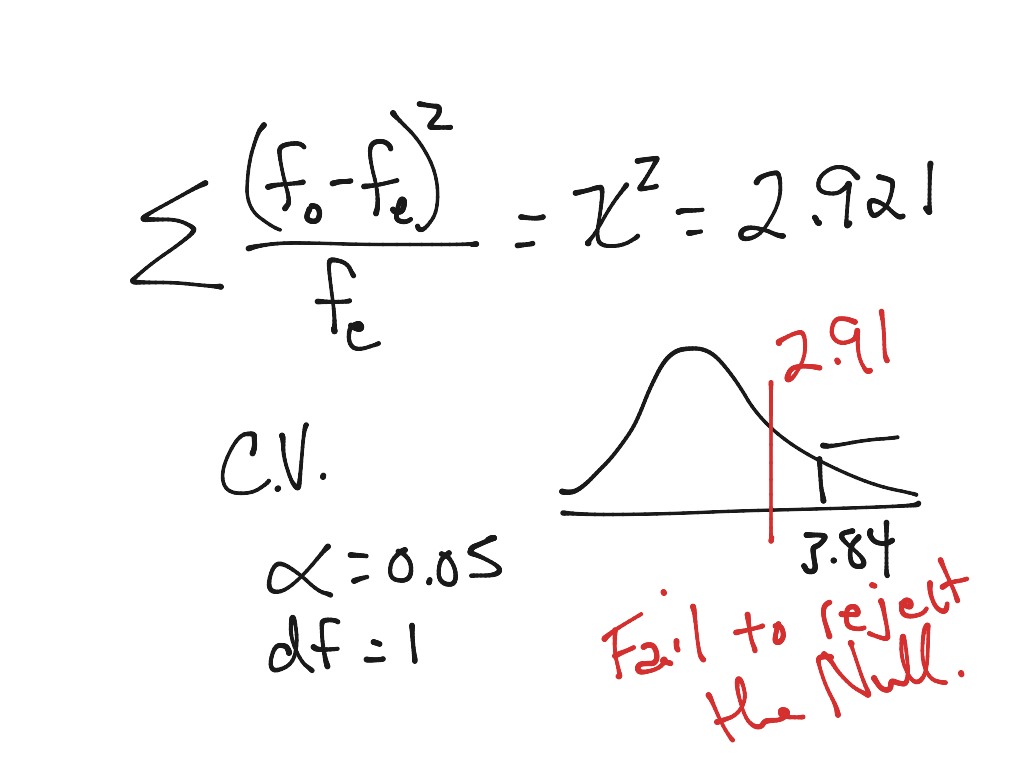 ∑ (fo - fe)² / fe = χ² = 2.921
2.91
C.V.
3.84
α = 0.05
df = 1
Fail to reject
the Null.